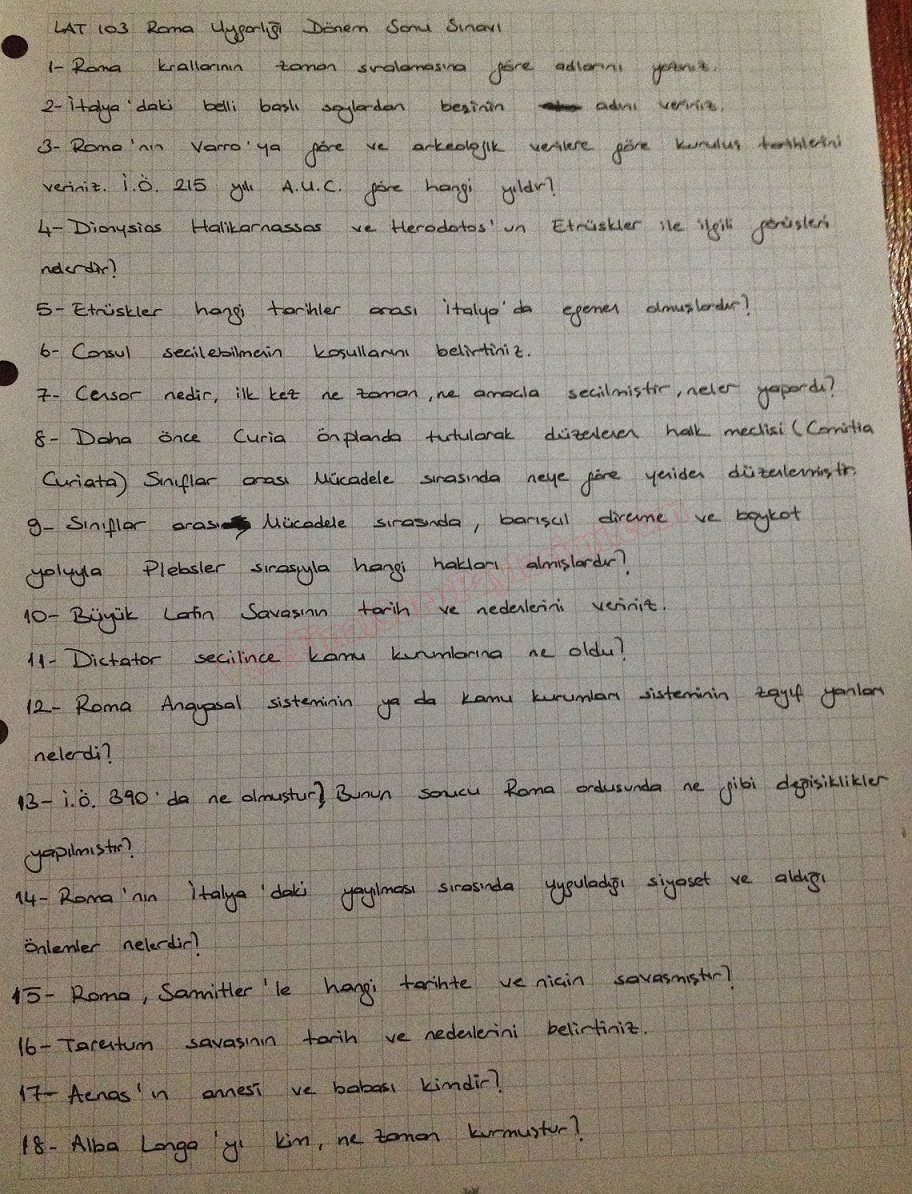 LAT 103 Roma Uygarlığı Dönem Sonu Sınavı
1- Roma krallarının zaman sıralamasına göre adlarını yazınız.
2- İtalya'daki belli başlı soylardan beşinin adını veriniz.
3- Roma'nın Varro'ya göre ve arkeolojik verilere göre kuruluş tarihlerini
veriniz. İ.Ö. 215 yılı A.U.C. göre hangi yıldır?
4- Dionysios Halikarnassos ve Herodotos'un Etrüskler ile ilgili görüşleri
nelerdir?
5- Etrüskler hangi tarihler arası İtalya'da egemen olmuşlardır?
6- Consul seçilebilmenin koşullarını belirtiniz.
7- Censor nedir, ilk kez ne zaman, ne amaçla seçilmiştir, neler yapardı?
8- Daha önce Curia ön planda tutularak düzenlenen halk meclisi (Comitia
Curiata) Sınıflar arası Mücadele sırasında neye göre yeniden düzenlenmiştir.
9- Sınıflar arası Mücadele sırasında, barışçıl direnme ve boykot
yoluyla Plebsler sırasıyla hangi hakları almışlardır?
10- Büyük Latin Savaşının tarih ve nedenlerini veriniz.
11- Dictator seçilince kamu kurumlarına ne oldu?
12- Roma Anayasal sisteminin ya da kamu kurumları sisteminin zayıf yanları
nelerdi?
13- İ.Ö. 390'da ne olmuştur? Bunun sonucu Roma ordusunda ne gibi değişiklikler
yapılmıştır?
14- Roma'nın İtalya'daki yayılması sırasında uyguladığı siyaset ve aldığı
önlemler nelerdir?
15- Roma, Samnitler'le hangi tarihte ve niçin savaşmıştır?
16- Tarentum savaşının tarih ve nedenlerini belirtiniz.
17- Aenas'ın annesi ve babası kimdir?
18- Alba Longa'yı kim, ne zaman kurmuştur?